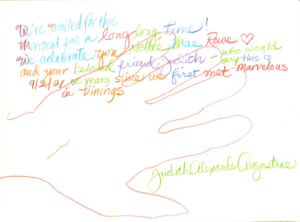 We've waited for this
moment for a long long time!
We celebrate you Mae Rowe ♡
and your beloved friend Judith - who would
say this is
9/2/21 years since we first met Marvelous
in Vinings
Judith Alexander Augustine